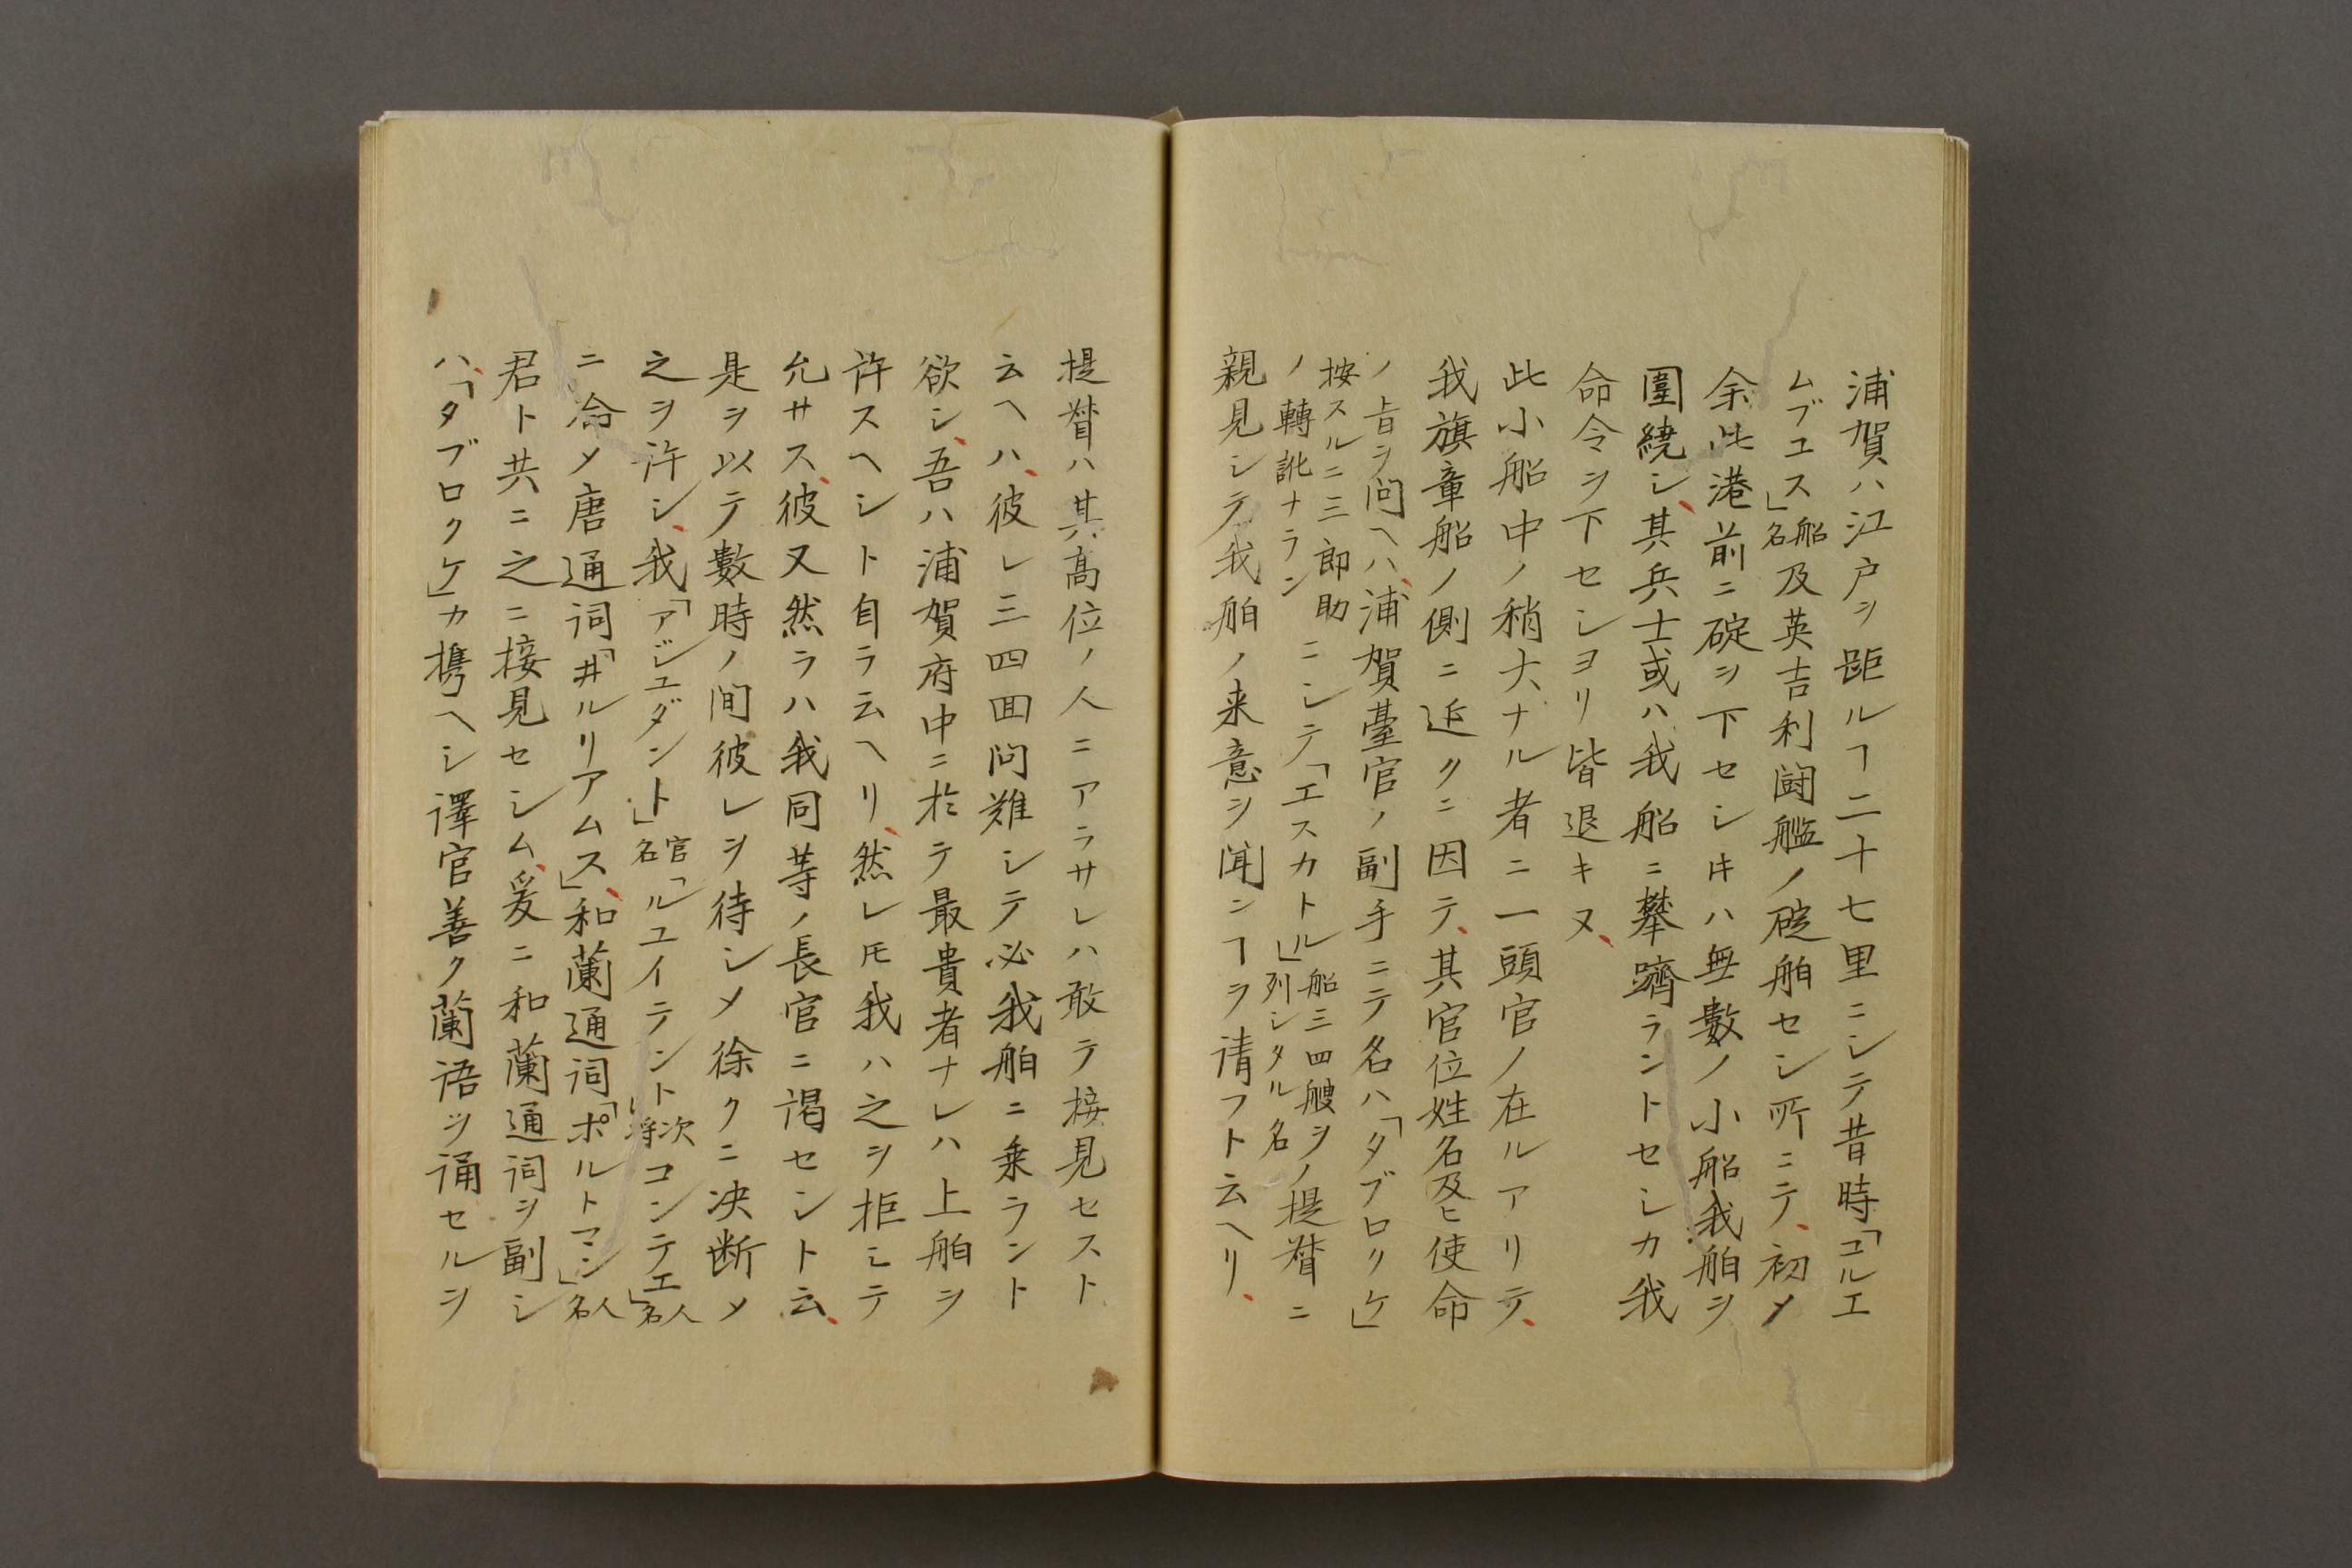 浦賀ハ江戸ヲ距ルヿ二十七里ニシテ昔時「コルエ
ムブユス」船名及英吉利闘艦ノ碇舶セシ所ニテ、初メ
余此港前ニ碇ヲ下セシ𪜈ハ無數ノ小船我舶ヲ
圍繞シ、其兵士或ハ我船ニ攀躋ラントセシカ我
命令ヲ下セシヨリ皆退キヌ、
此小船中ノ稍大ナル者ニ一頭官ノ在ルアリテ、
我旗章船ノ側ニ近クニ因テ、其官位姓名及ヒ使命
ノ旨ヲ問ヘハ、浦賀臺官ノ副手ニテ名ハ「タブロクケ」
按スルニ三郎助ノ轉訛ナランニシテ「エスカトル」船三四艘ヲ列シタル名ノ提督ニ
親見シテ我舶ノ来意ヲ聞ンヿヲ請フト云ヘリ、
提督ハ其高位ノ人ニアラサレハ敢テ接見セスト
云ヘハ、彼レ三四囬問難シテ必我舶ニ乗ラント
欲シ、吾ハ浦賀府中ニ於テ最貴者ナレハ上舶ヲ
許スヘシト自ラ云ヘリ、然レ𪜈我ハ之ヲ拒ミテ
允サス、彼又然ラハ我同等ノ長官ニ謁セント云、
是ヲ以テ數時ノ間彼レヲ待シメ徐クニ决断メ
之ヲ許シ、我「アジユダント」官名「ルユイテント」次将コンテエ」人名
ニ命メ唐通詞「井ルリアムス」、和蘭通詞「ポルトマン」人名
君ト共ニ之ニ接見セシム、爰ニ和蘭通詞ヲ副シ
ハ、「タブロクケ」カ携ヘシ譯官善ク蘭語ヲ誦セルヲ